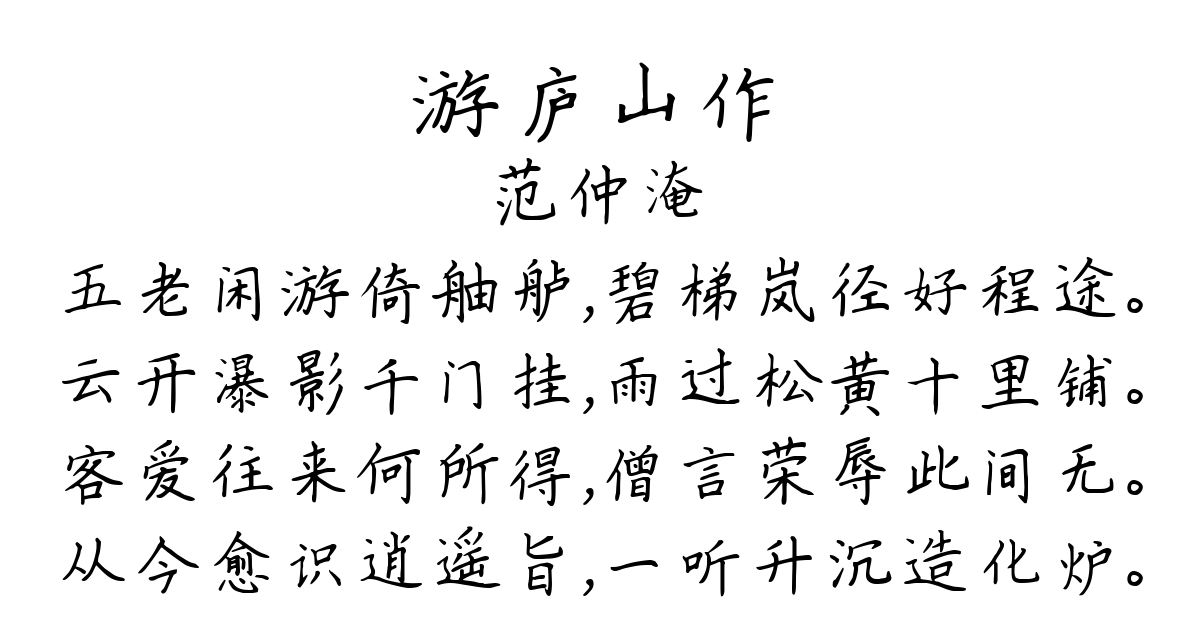 游庐山作
范仲淹
五老闲游倚舳舻,碧梯岚径好程途。
云开瀑影千门挂,雨过松黄十里铺。
客爱往来何所得,僧言荣辱此间无。
从今愈识逍遥旨,一听升沉造化炉。